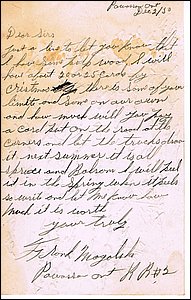 Powassan Ont
Dec 2/50
Dear Sirs
Just a line to let you know that
I have some pulp wood, I will
have about 20 or 25 Cards by
Cristmas, there is som of your
limits and som on our own
and how much will you pay
a Card put on the road at the
corners and let the trucks draw
it next summer it is al
Spruce and Balsom I will peel
it in the Spring when it peels
so write and let me know how
Much it is worth
your truly,
Frank
Powassan Ont R R #2